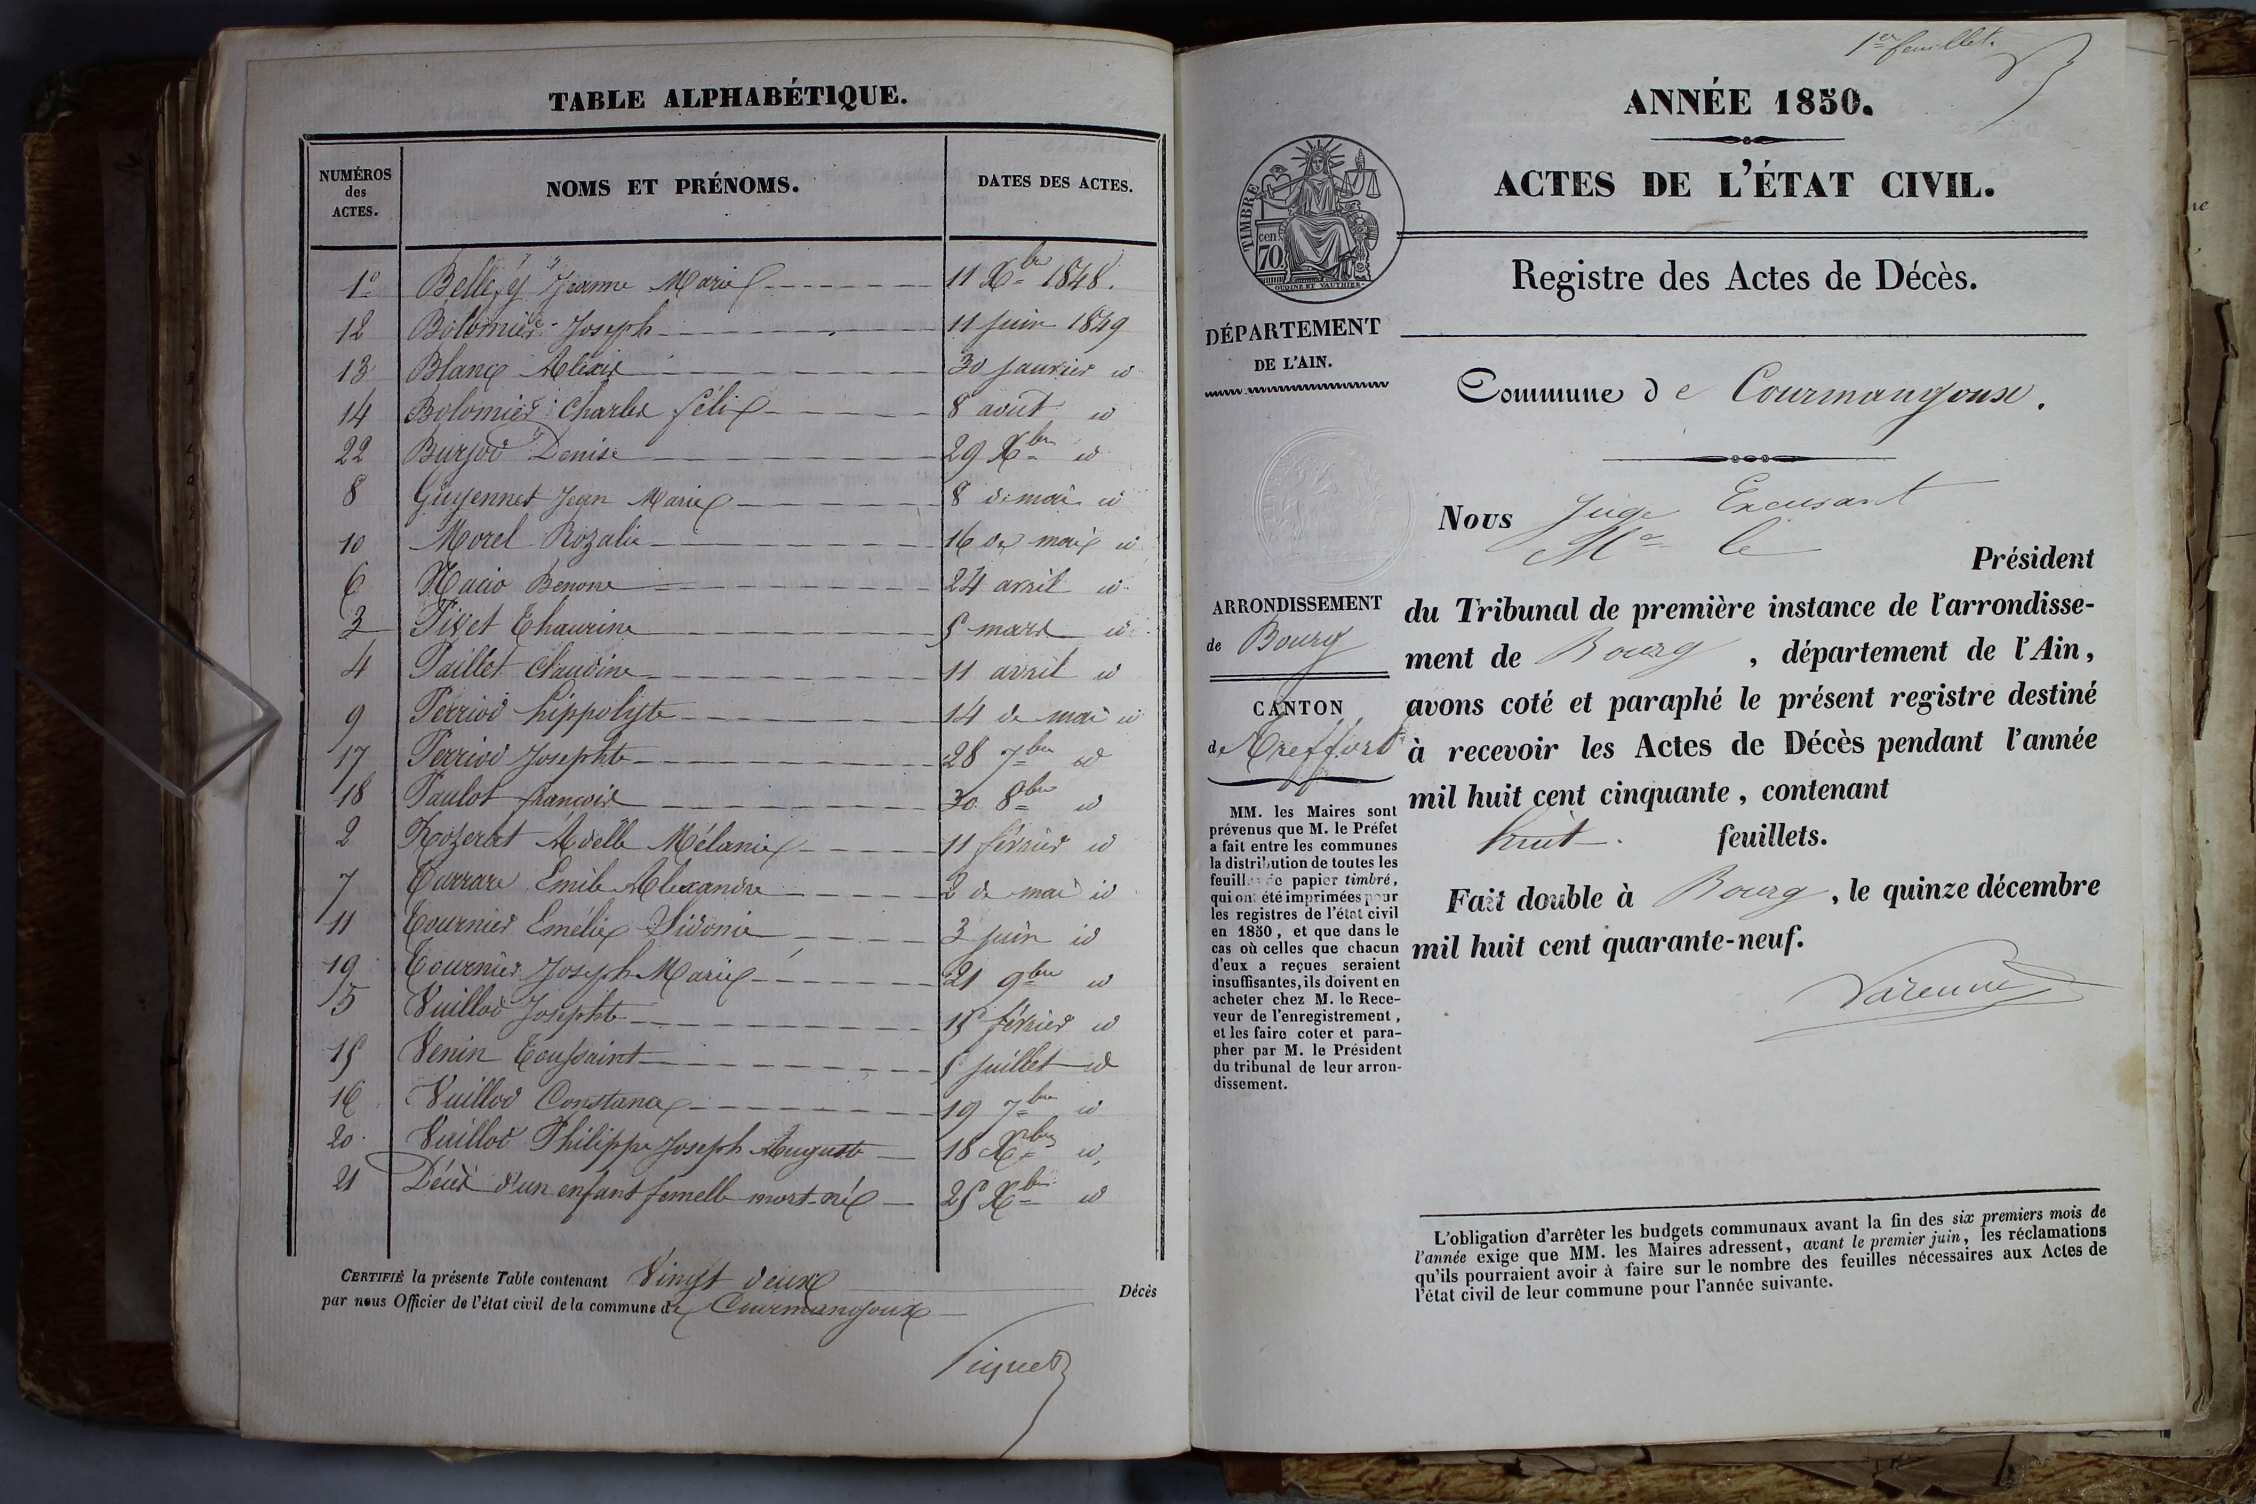 TABLE ALPHABÉTIQUE.
NUMÉROS des ACTES. NOMS ET PRÉNOMS. DATES DES ACTES.
1º Bellefy Jeanne Marie 11 Xbre 1848.
12 Bolomier Joseph 11 juin 1849
13 Blanc Alexis 30 janvier id
14 Bolomier Charles félix 8 août id
22 Burjod Denise 29 Xbre id
8 Guyennet Jean Marie 8 de mai id
10 Morel Rozalie 16 de mai id
6 Benone 24 avril id
3 Pivet 5 mars id
4 Paillot Claudine 11 avril id
9 Perriod hippolyte 14 de mai id
17 Perriod Josephte 28 7bre id
18 Paulot françois 30 8bre id
2 Rozerat Adelle Mélanie 11 février id
7 Emile Alexandre 2 de mai id
11 Tournier Emélie Sidonie 3 juin id
19 Tournier Joseph Marie 21 9bre id
5 Vuillod Josephte 15 février id
15 Venin Toussaint 5 juillet id
16 Vuillod Constance 19 7bre id
20 Vuillod Philippe Joseph Auguste 18 Xbre id
21 Décès d'un enfant femelle mort-né 25 Xbre id
CERTIFIÉ la présente Table contenant Vingt deux Décès
par nous Officier de l'état civil de la commune de Courmangoux
1er feuillet.
ANNÉE 1850.
ACTES DE L'ÉTAT CIVIL.
Registre des Actes de Décès.
TIMBRE
70 cen.
OUDINÉ ET VAUTHIER
DÉPARTEMENT
DE L'AIN.
Commune de Courmangoux.
ARRONDISSEMENT
de Bourg
CANTON
de Treffort
MM. les Maires sont
prévenus que M. le Préfet
a fait entre les communes
la distribution de toutes les
feuilles de papier timbré,
qui ont été imprimées pour
les registres de l'état civil
en 1850, et que dans le
cas où celles que chacun
d'eux a reçues seraient
insuffisantes, ils doivent en
acheter chez M. le Rece-
veur de l'enregistrement,
et les faire coter et para-
pher par M. le Président
du tribunal de leur arron-
dissement.
Nous Juge Excusant
Mr le Président
du Tribunal de première instance de l'arrondisse-
ment de Bourg, département de l'Ain,
avons coté et paraphé le présent registre destiné
à recevoir les Actes de Décès pendant l'année
mil huit cent cinquante, contenant
huit feuillets.
Fait double à Bourg, le quinze décembre
mil huit cent quarante-neuf.
Varenne
L'obligation d'arrêter les budgets communaux avant la fin des six premiers mois de
l'année exige que MM. les Maires adressent, avant le premier juin, les réclamations
qu'ils pourraient avoir à faire sur le nombre des feuilles nécessaires aux Actes de
l'état civil de leur commune pour l'année suivante.